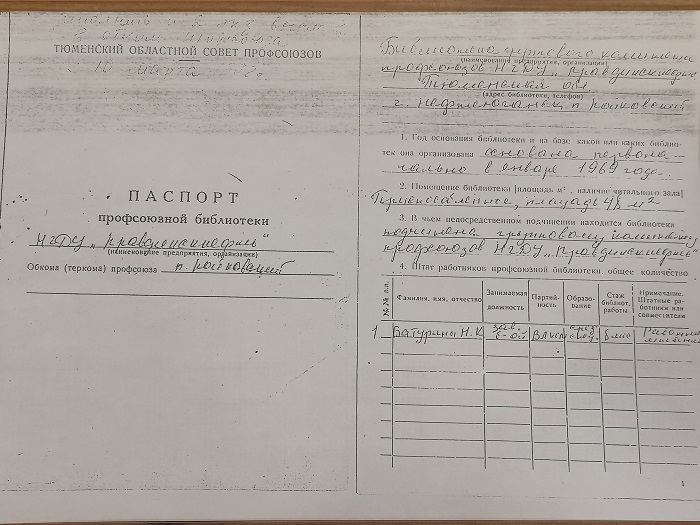 ТЮМЕНСКИЙ ОБЛАСТНОЙ СОВЕТ ПРОФСОЮЗОВ
ПАСПОРТ
профсоюзной библиотеки
НГДУ „Правдинскнефть“
(наименование предприятия, организации)
Обкома (теркома) профсоюза п. Пойковский
Библиотека группового комитета
(наименование предприятия, организации)
профсоюзов НГДУ „Правдинскнефть
Тюменская обл.
(адрес библиотеки, телефон)
г. Нефтеюганск, п. Пойковский
1. Год основания библиотеки и на базе какой или каких библио-
тек она организована основана первона-
чально в январе 1969 года.
2. Помещение библиотеки (площадь м², наличие читального зала)
Приспособленное, площадь 48 м²
3. В чьем непосредственном подчинении находится библиотека
подчинена групповому комитету
профсоюзов НГДУ „Правдинскнефть“
4. Штат работников профсоюзной библиотеки, общее количество
№№ п.п.
Фамилия, имя, отчество
Занимаемая должность
Партий-ность
Образо-вание
Стаж библиот. работы
Примечание: Штатные ра-ботники или совместители
1. Батурина Н.К. зав. б-ой
1